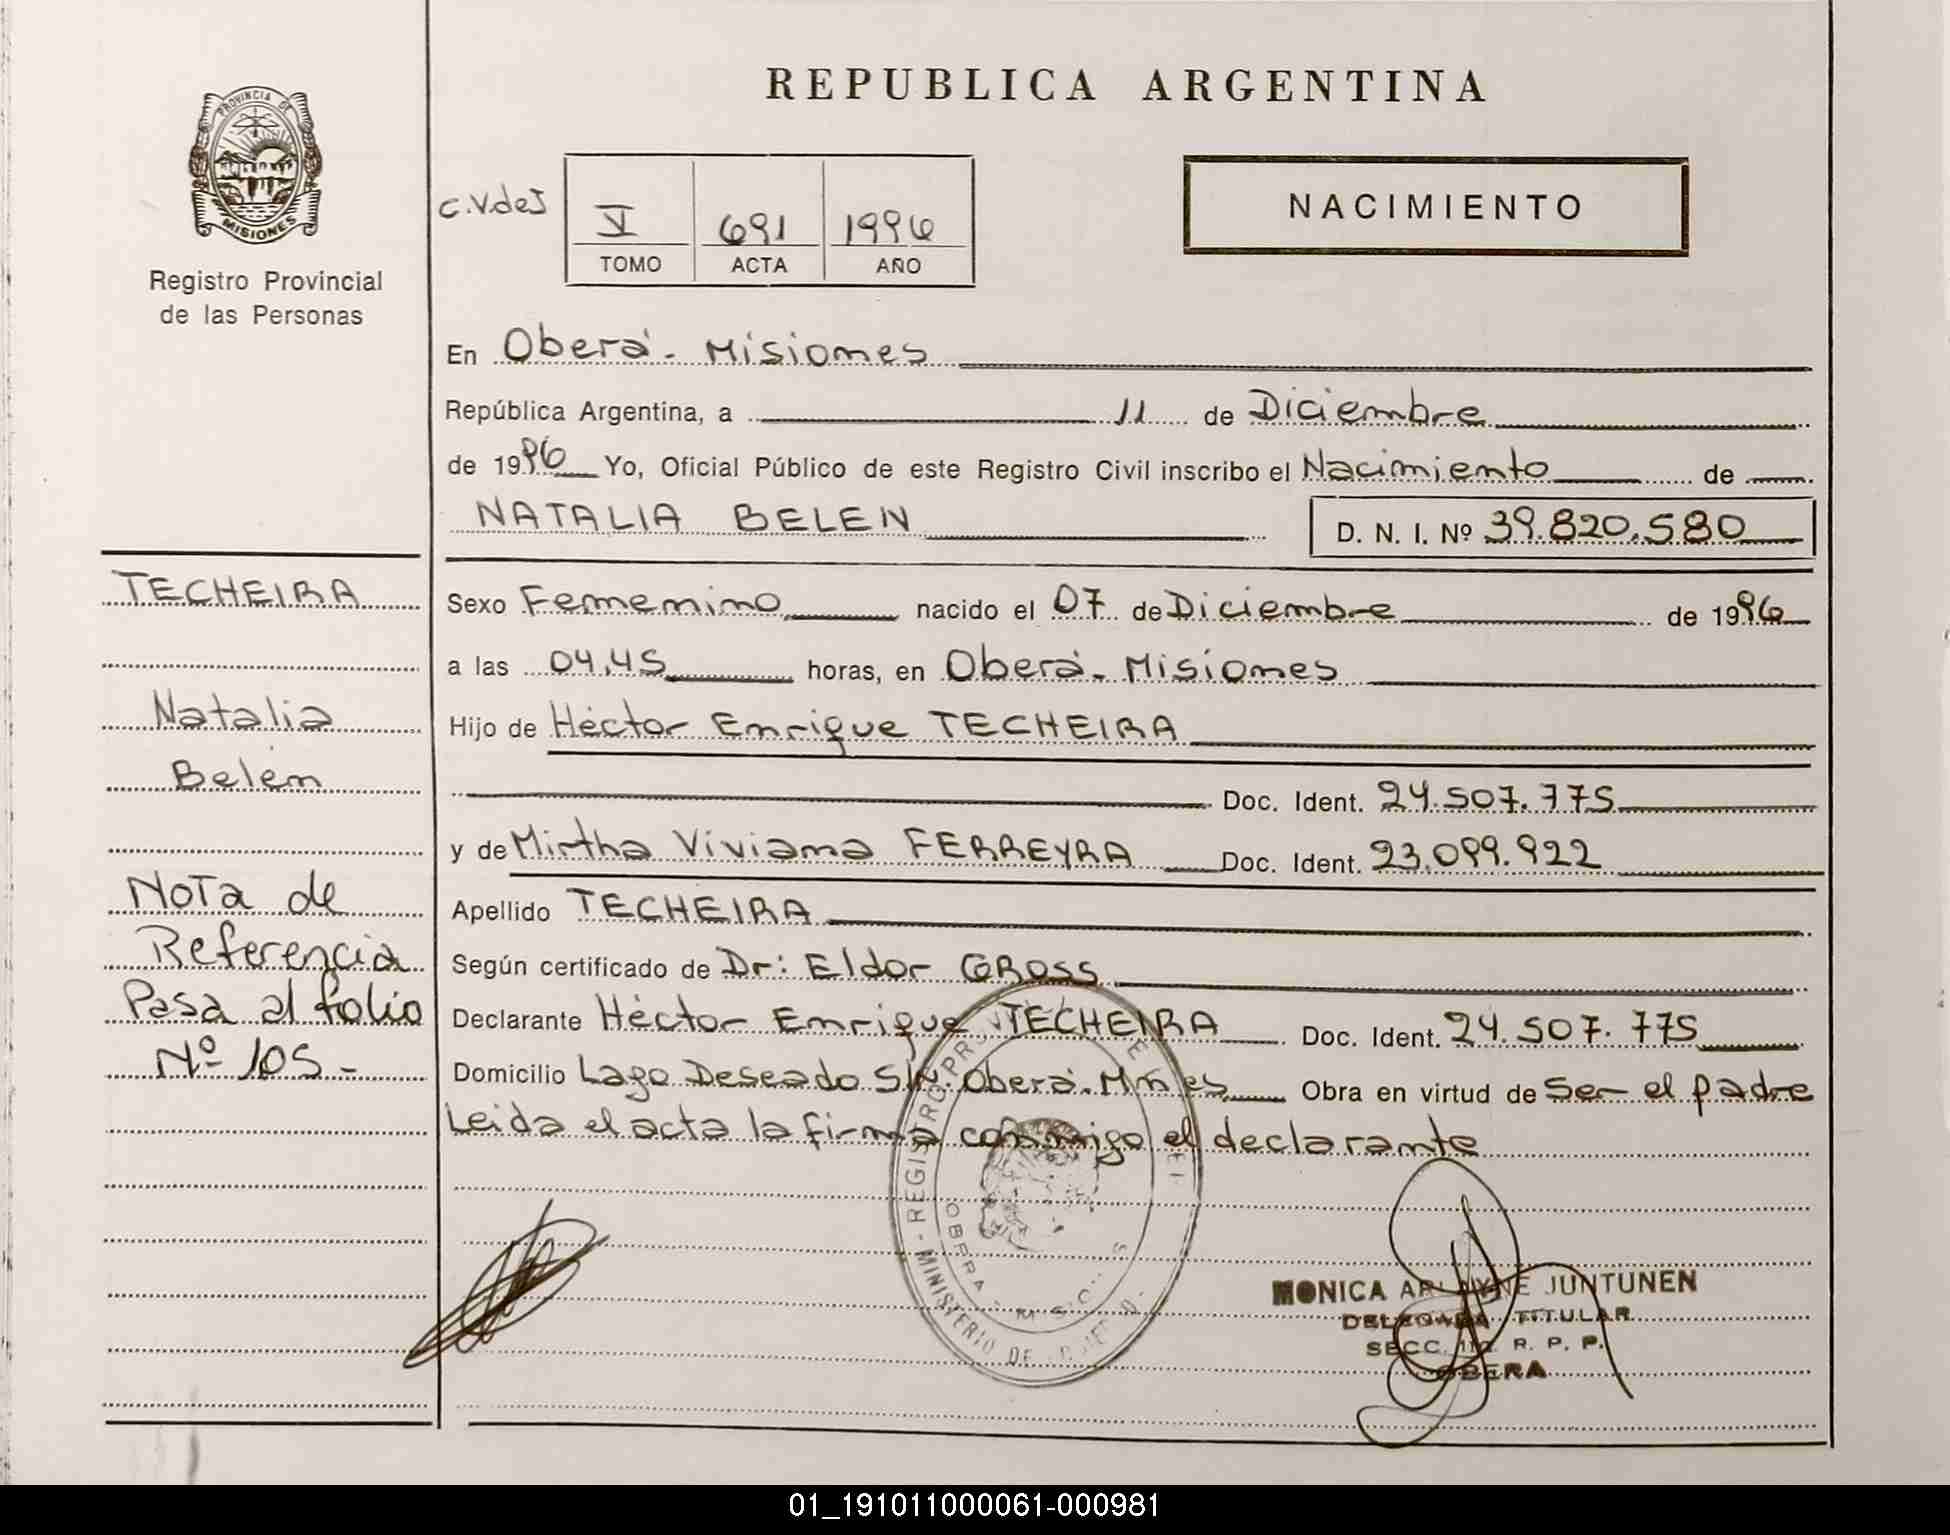 PROVINCIA DE
MISIONES
Registro Provincial
de las Personas
REPUBLICA ARGENTINA
C.V.deJ
V 691 1996
TOMO ACTA AÑO
NACIMIENTO
En Oberá - Misiones
República Argentina, a 11 de Diciembre
de 1996 Yo, Oficial Público de este Registro Civil inscribo el Nacimiento de
NATALIA BELEN D. N. I. Nº 39.820.580
TECHEIRA
Natalia
Belen
Nota de
Referencia
Pasa al folio
Nº 105-
Sexo Femenino nacido el 07 de Diciembre de 1996
a las 04,45 horas, en Oberá - Misiones
Hijo de Héctor Enrique TECHEIRA
Doc. Ident. 24.507.775
y de Mirtha Viviana FERREYRA Doc. Ident. 23.099.922
Apellido TECHEIRA
Según certificado de Dr: Eldor GROSS
Declarante Héctor Enrique TECHEIRA Doc. Ident. 24.507.775
Domicilio Lago Deseado S/N. Oberá. Mnes Obra en virtud de Ser el padre
Leida el acta la firma conmigo el declarante
MINISTERIO DE
MONICA ARLAYNE JUNTUNEN
DELEGADA TITULAR
SECC. R. P. P.
OBERA
01_191011000061-000981